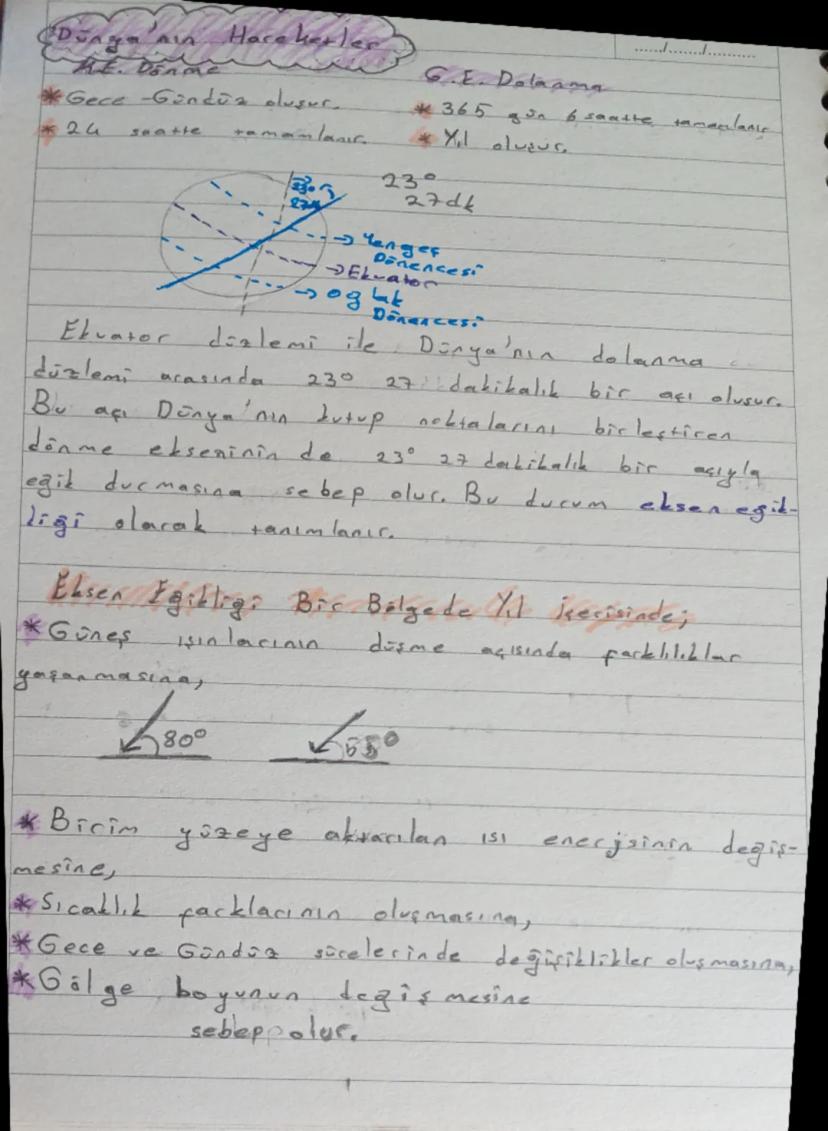 Dünya'nın Hareketler
K.E. Dönme
G.E. Dolanma
...../...../.........
* Gece-Gündüz oluşur.
* 365 gün 6 saatte tamamlanır
* 24 saatte tamamlanır.
* Yıl oluşur.
23°
27dk
23°
27dk
→ Yengeç
Dönencesi
→ Ekvator
→ Oğlak
Dönencesi
Ekvator düzlemi ile Dünya'nın dolanma
düzlemi arasında 23° 27 dakikalık bir açı oluşur.
Bu açı Dünya'nın kutup noktalarını birleştiren
dönme ekseninin de 23° 27 dakikalık bir açıyla
eğik durmasına sebep olur. Bu durum eksen eğik-
liği olarak tanımlanır.
Eksen Eğikliği Bir Bölgede Yıl İçerisinde;
* Güneş ışınlarının düşme açısında farklılıklar
yaşanmasına,
80°
* Birim yüzeye aktarılan ısı enerjsinin değiş-
mesine,
* Sıcaklık farklarının oluşmasına,
* Gece ve Gündüz sürelerinde değişiklikler oluşmasına,
* Gölge boyunun değişmesine
sebep olur.